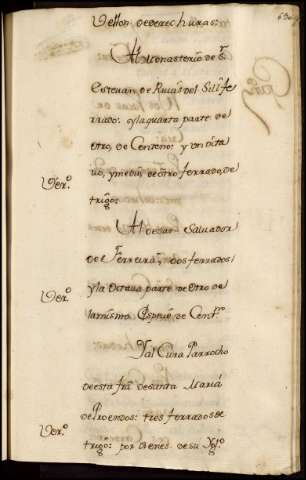 Vellon de derechuras:
Al Monasterio de Sn
Estevan, de Rivas del Sil: fe
rrado: y la quarta parte de
otro, de Centeno: y un octa
vo, y medio, de otro ferrado, de
trigo:
Al de San Salvador
de Ferreira, dos ferrados
y la octava parte de otro de
la misma Espezie de Centno
Y al Cura Parrocho
de esta fra de Santa Maria
de Proendos: tres ferrados de
trigo: por vienes de su Ygla
Der.o
Der.o
Der.o